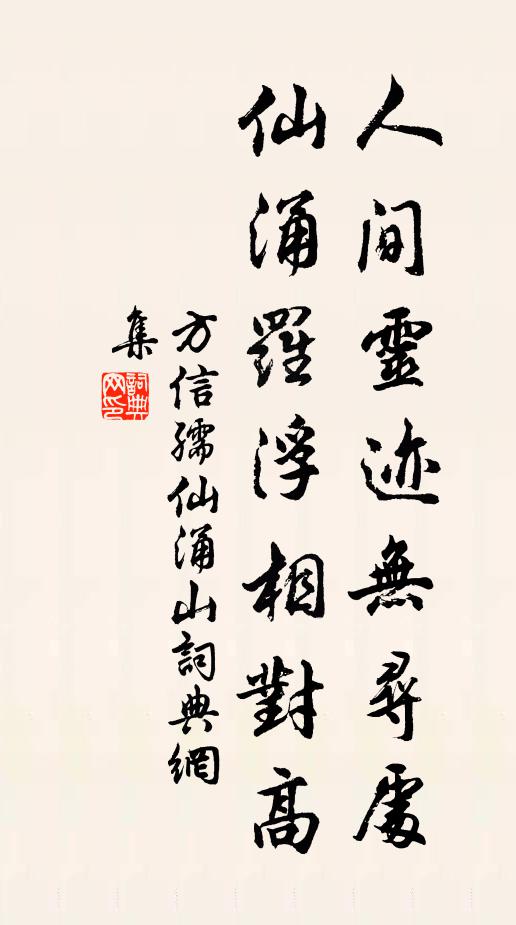 人間靈迹無尋處
仙涌羅浮相對高
方信孺仙涌山詞典網
集
詞典
网印